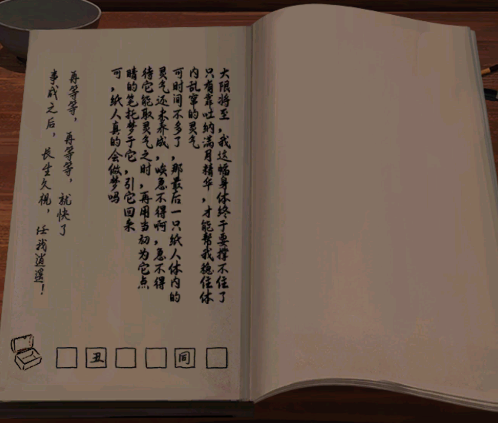 大限将至，我这幅身体终于要撑不住了
只有靠吐纳满月精华，才能帮我稳住体
内乱窜的灵气
可时间不多了，那最后一只纸人体内的
灵气还未养成，唉急不得啊，急不得
待它能取灵气之时，再用当初为它点
睛的笔托梦于它，引它回来
可，纸人真的会做梦吗
再等等，再等等，就快了
事成之后，长生久视，任我逍遥！
丑 间